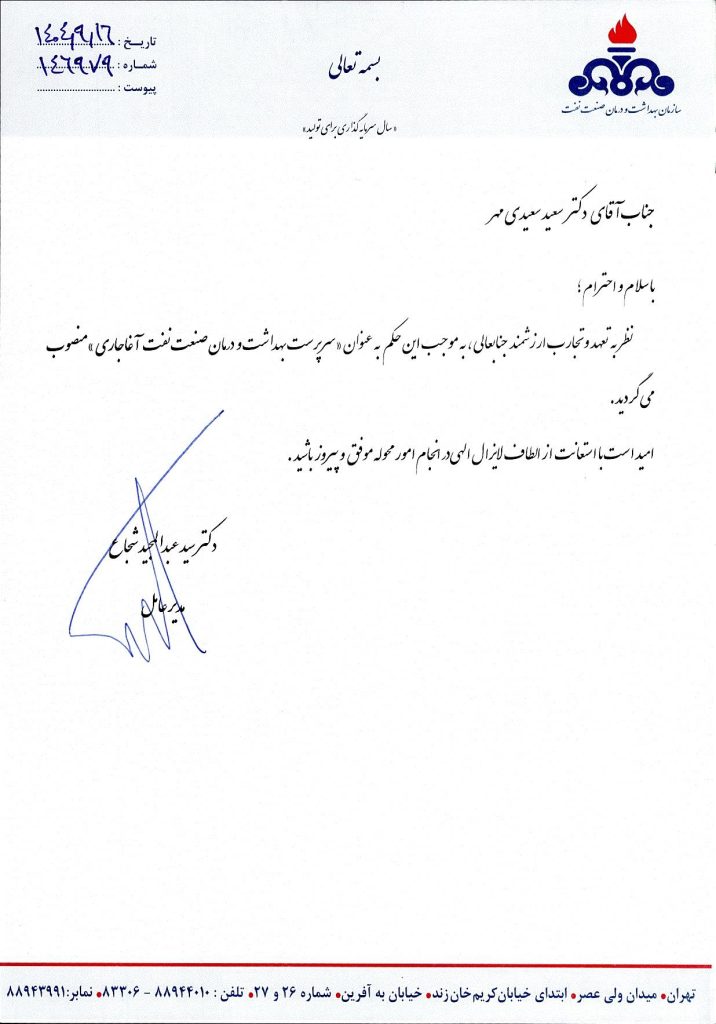 تاریخ : ۱۴۰۴/۹/۱۶
شماره : ۱۴۶۹۷۹
پیوست :
بسمه تعالی
سازمان بهداشت و درمان صنعت نفت
«سال سرمایه گذاری برای تولید»
جناب آقای دکتر سعید سعیدی مهر
با سلام و احترام ؛
نظر به تعهد و تجارب ارزشمند جنابعالی، به موجب این حکم به عنوان «سرپرست بهداشت و درمان صنعت نفت آغاجاری» منصوب
می گردید.
امید است با استعانت از الطاف لایزال الهی در انجام امور محوله موفق و پیروز باشید.
دکتر سید عبدالمجید شجاع
مدیر عامل
تهران• میدان ولی عصر• ابتدای خیابان کریم خان زند• خیابان به آفرین• شماره ۲۶ و ۲۷• تلفن : ۸۸۹۴۴۰۱۰ - ۸۳۳۰۶• نمابر:۸۸۹۴۳۹۹۱